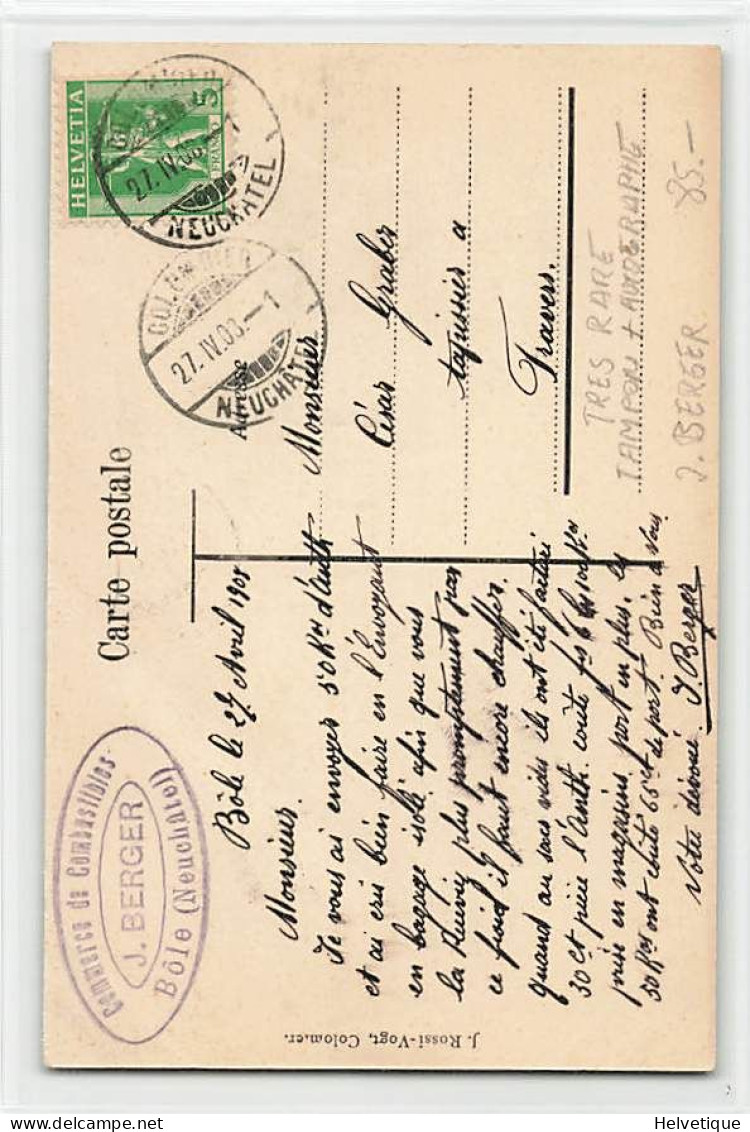 Carte postale
HELVETIA
5
FRANCO
COLOMBIER
27.IV.08.-1
NEUCHATEL
COLOMBIER
27.IV.08.-1
NEUCHATEL
Commerce de Combustibles
J. BERGER
Bôle (Neuchâtel)
Adresse
Monsieur
César Graber
tapissier a
Travers.
Bôle le 27 Avril 1908
Monsieur.
Je vous ai envoyer 50 Kos d'Anth
et ai cru bien faire en l'Envoyant
en bagage isolé afin que vous
la Receviez plus promptement par
ce froid il faut encore chauffer.
quand au sacs vides ils ont été facturé
30 ct pièce l'Anth. coûte frs 6 les 100 Kos
prise en magasins, port en plus, les
50 Kos ont couté 65 ct de port. Bien a vous
Votre dévoué. J. Berger
J. Rossi-Vogt, Colombier.
TRES RARE
TAMPON + AUTOGRAPHE
J. BERGER 85.-
Helvetique